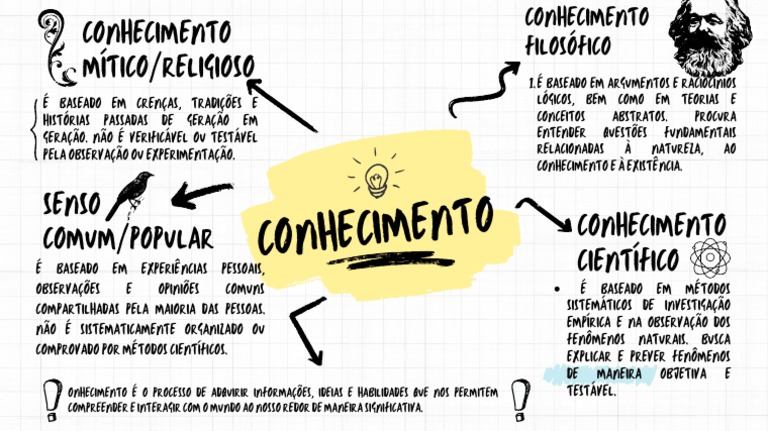 CONHECIMENTO
MÍTICO/RELIGIOSO
É BASEADO EM CRENÇAS, TRADIÇÕES E
HISTÓRIAS PASSADAS DE GERAÇÃO EM
GERAÇÃO. NÃO É VERIFICÁVEL OU TESTÁVEL
PELA OBSERVAÇÃO OU EXPERIMENTAÇÃO.
CONHECIMENTO
FILOSÓFICO
1. É BASEADO EM ARGUMENTOS E RACIOCÍNIOS
LÓGICOS, BEM COMO EM TEORIAS E
CONCEITOS ABSTRATOS. PROCURA
ENTENDER QUESTÕES FUNDAMENTAIS
RELACIONADAS À NATUREZA, AO
CONHECIMENTO E À EXISTÊNCIA.
SENSO
COMUM/POPULAR
É BASEADO EM EXPERIÊNCIAS PESSOAIS,
OBSERVAÇÕES E OPINIÕES COMUNS
COMPARTILHADAS PELA MAIORIA DAS PESSOAS.
NÃO É SISTEMATICAMENTE ORGANIZADO OU
COMPROVADO POR MÉTODOS CIENTÍFICOS.
CONHECIMENTO
CONHECIMENTO
CIENTÍFICO
• É BASEADO EM MÉTODOS
SISTEMÁTICOS DE INVESTIGAÇÃO
EMPÍRICA E NA OBSERVAÇÃO DOS
FENÔMENOS NATURAIS. BUSCA
EXPLICAR E PREVER FENÔMENOS
DE MANEIRA OBJETIVA E
TESTÁVEL.
ONHECIMENTO É O PROCESSO DE ADQUIRIR INFORMAÇÕES, IDEIAS E HABILIDADES QUE NOS PERMITEM
COMPREENDER E INTERAGIR COM O MUNDO AO NOSSO REDOR DE MANEIRA SIGNIFICATIVA.